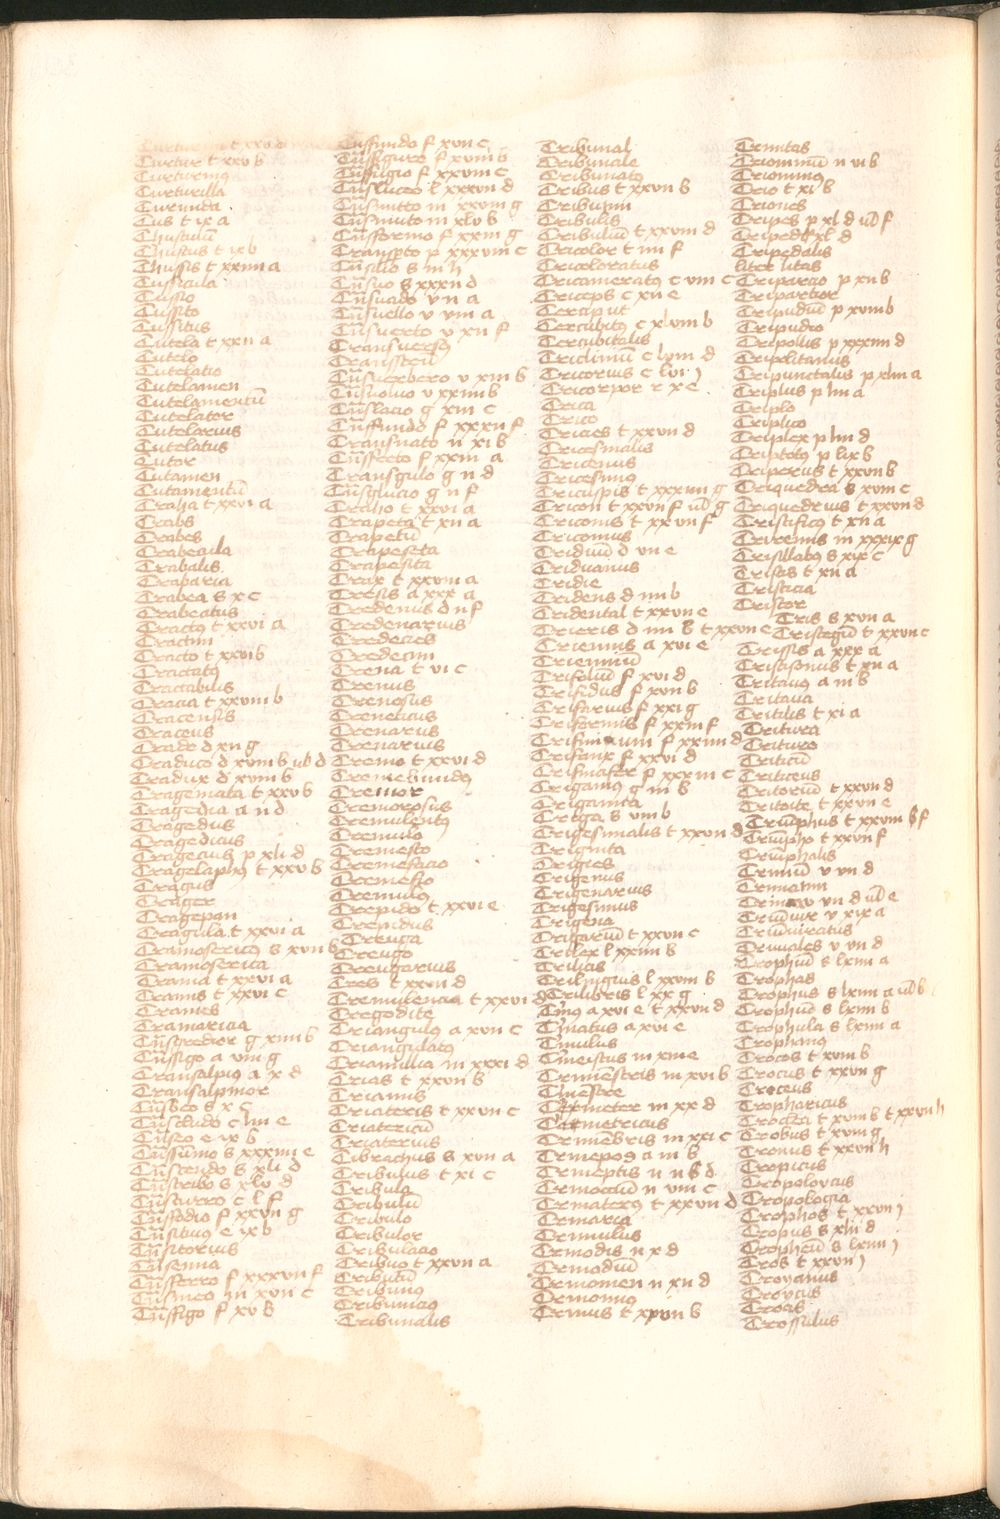 Turtur t xxv b
Turturinꝰ
Turturilla
Turunda
Tus t ix a
Thusculū
Thuscus t ix b
Thussis t xxiiii a
Tussicula
Tussio
Tussito
Tussitus
Tutela t xxii a
Tutelo
Tutelatio
Tutelamen
Tutelamentū
Tutelator
Tutelarius
Tutelatus
Tutor
Tutamen
Tutamentū
Traha t xxvi a
Trabs
Trabes
Trabecula
Trabalis
Trabaria
Trabea s x c
Trabeatus
Tractꝰ t xxvi a
Tractim
Tracto t xxvi b
Tractatꝰ
Tractabilis
Tracia t xxviii b
Tracensis
Traceus
Trado d xii g
Traduco d xviii b ub d
Tradux d xviii b
Tragemata t xxv b
Tragedia a ii d
Tragedus
Tragedicus
Tragecus p xli d
Tragelaphꝰ t xxv b
Tragus
Trager
Tragepan
Tragula t xxvi a
Tramosericꝰ s xvii b
Tramoserica
Trama t xxvi a
Tramis t xxvi c
Trames
Tramarica
Tn̄sgredior g xiiii b
Tn̄sigo a viii g
Transalpiꝰ a x d
Transalpinor
Tn̄sbeo s x c
Tn̄scludo c liii e
Tn̄seo e ix b
Tn̄ssumo s xxxiiii e
Tn̄scendo s xli d
Tn̄scribo s xlv d
Tn̄scurro c l f
Tn̄sfodio f xxvii g
Tn̄situs e ix b
Tn̄sitorius
Tn̄senna
Tn̄sferro f xxxvii f
Tn̄smeo m xvii c
Tn̄sfigo f xv b
Tn̄sfundo f xvii c
Tn̄sfiguro f xviii b
Tn̄sfugio f xxviii c
Tn̄sluceo l xxxvii d
Tn̄smitto m xxviii g
Tn̄smuto m xlv b
Tn̄sformo f xxiii g
Transpto p xxxviii c
Tn̄silio s iii h
Tn̄suo s xxxii d
Tn̄suado v ii a
Tn̄suello v viii a
Tn̄suerto v xii f
Transuersꝰ
Transsteū
Tn̄suerbero v xiii b
Tn̄suoluo v xxiiii b
Tn̄slacio g xiii c
Tn̄sfundo f xxxii f
Transnato n xi b
Tn̄sfreto f xxiii a
Transgulo g ii d
Tn̄sglucio g ii f
Traho t xxvi a
Trapeta t xii a
Trapetū
Trapesita
Trapesita
Trax t xxviii a
Tresis a xxx a
Tredenus d ii f
Tredenarius
Tredecies
Tredecim
Trena t vi c
Trenus
Trenosus
Treneticus
Trenarus
Trenarius
Tremo t xxvi d
Tremebundꝰ
Tremor
Tremorosus
Tremulentꝰ
Tremulo
Tremesto
Tremefacio
Tremesto
Tremulꝰ
Trepido t xxvi e
Trepidus
Treuga
Treugo
Treugarius
Tres t xxvii d
Tremulencia t xxvi d
Tregodite
Triangulꝰ a xvii c
Triangulatꝰ
Triamilla m xxxi d
Trias t xxvii b
Triamis
Triateris t xxvii c
Triatericū
Triaterius
Tribrachus s xvii a
Tribulus t xi c
Tribula
Tribulū
Tribulo
Tribulor
Tribulacio
Tribuo t xxvii a
Tributū
Tribunꝰ
Tribunicꝰ
Tribunalis
Tribunal
Tribunale
Tribunatꝰ
Tribus t xxvii b
Tributim
Tribulis
Tribulū t xxviii d
Tricolor t iiii f
Tricoloratus
Tricameratꝰ c viii c
Triceps c xii e
Tercip ut
Tercubitꝰ c xlviii b
Tercubitalis
Tricliniū c lviii d
Tricorius c lvi j
Tricorpor r x e
Trica
Trico
Trices t xxvii d
Tricesimalis
Tricenus
Tricesimꝰ
Tricuspis t xxxviii g
Tricon t xxvii f ub g
Triconis t xxvii f
Triconius
Triduū d vii e
Triduanus
Tridie
Tridens d iiii b
Tridental t xxvii e
Trieris d iiii b t xxvii e
Triennis a xvi e
Trienniū
Trifoliū f xvi d
Trifidus f xvii b
Trifarius f xxi g
Triformis f xxiii f
Trifinium f xxiiii d
Trifaux f xxvi d
Trifurcifer f xxxiii c
Trigamꝰ g iii b
Trigamita
Triga s viii b
Trigesimalis t xxvii d
Triginta
Trigies
Trigenus
Trigenarius
Trigesimus
Trigena
Trigariū t xxvii c
Trilex l xxiiii b
Trilicis
Trilinguis l xxviii b
Trilibris l xx g
Tinꝰ a xvi e t xxvii d
Timatus a xvi e
Timulus
Trimestus m xiii e
Trimēstris m xvi b
Timestre
Termeter m xx d
Termetricus
Trimēbris m xxi c
Trinepos a iii b
Trineptis n ii b d
Trinoctiū n viii c
Trinatexꝰ t xxvii d
Trinaria
Trimulus
Trimodis n x d
Trimodiū
Trinomen n xii d
Trinomiꝰ
Trinus t xxvii b
Trinitas
Triominū n vi b
Triominꝰ
Trio t xi b
Triones
Tripes p xl d ub f
Tripedo xl d
Tripedalis
liter litas
Triparcio p xii b
Tripartior
Tripudiū p xviii b
Tripudio
Tripollis p xxxiiii d
Triplitanus
Tripunctalis p xliii a
Triplus p liii a
Triplo
Triplico
Triplex p liiii d
Triptotꝰ p lix b
Triperius t xxvii b
Triquedra s xviii c
Triquedrius t xxvii d
Tristificꝰ t xii a
Triremis m xxxix g
Trisillabꝰ s xix c
Tristis t xii a
Tristicia
Tristor
Tris s xvii a
Tristegiū t xxvii c
Trissis a xxx a
Tristisonus t xii a
Tritauꝰ a iii b
Tritaua
Tritilis t xi a
Tritura
Trituro
Triticū
Triticeus
Tritoriū t xxvii d
Tritoite t xxvii e
Triūphus t xxviii b f
Triūpho t xxvii f
Triūphalis
Triuiū v vii d
Triuiatim
Triuio vii d ub e
Triūuir v xix a
Triūuiratus
Triuiales v vii d
Trophiū s lxiii a
Trophas
Trophus s lxiii a ub b
Trophiū s lxiii b
Trophula s lxiii a
Trophanꝰ
Trocos t xviii b
Trocus t xxvii g
Troceus
Tropharicus
Troclea t xviii b t xxvii h
Trobus t xviii g
Tronus t xxvii h
Tropicus
Tropoloycus
Tropologia
Trophos t xxvii j
Tropus s xlii d
Trophcū s lxiii j
Tros t xxvii j
Troyanus
Troycus
Trois
Trossulus